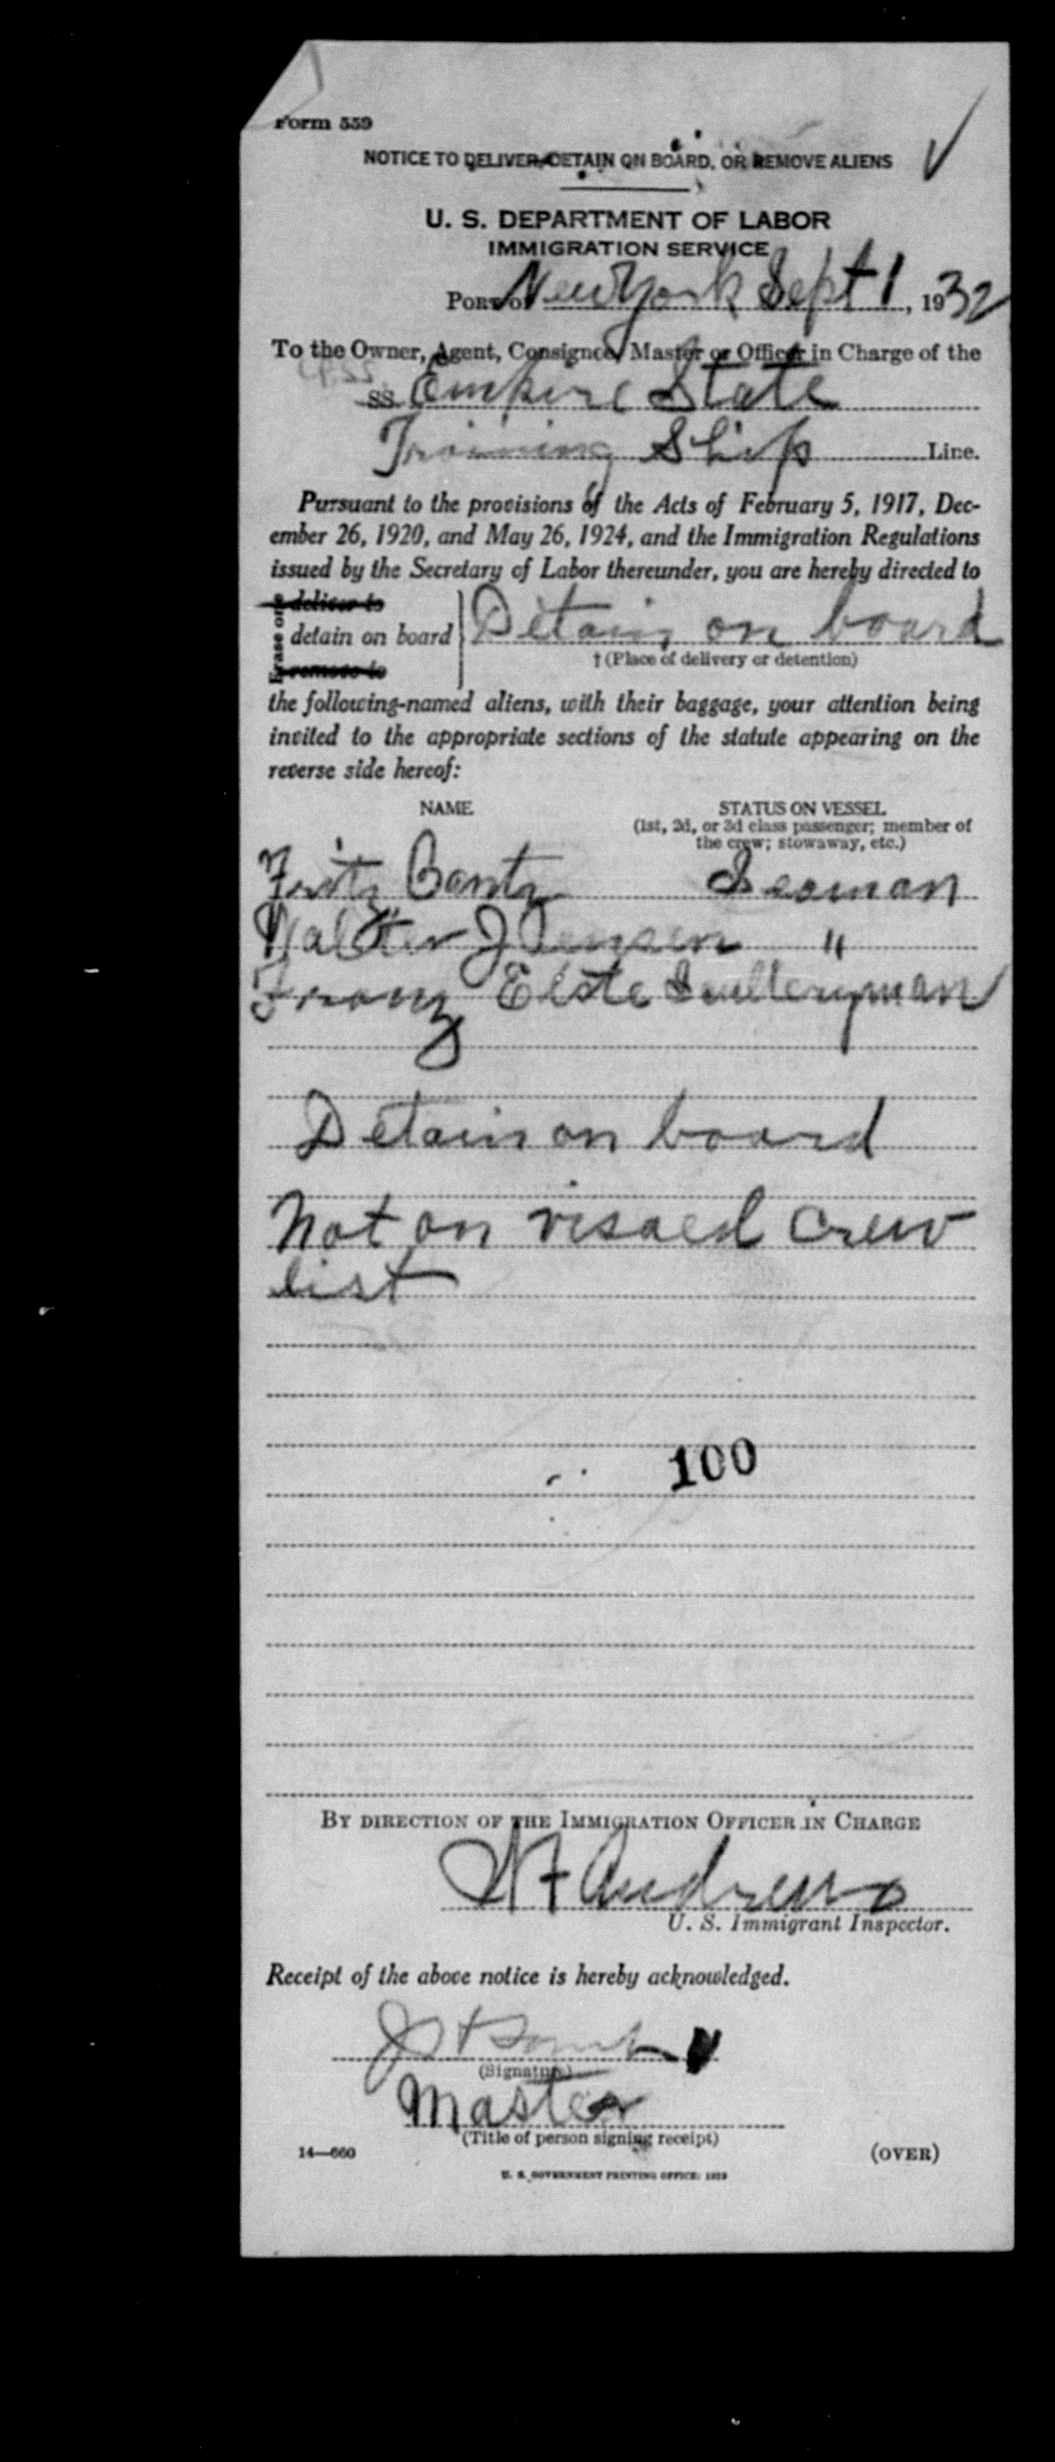 Form 559
NOTICE TO DELIVER, DETAIN ON BOARD, OR REMOVE ALIENS
U. S. DEPARTMENT OF LABOR
IMMIGRATION SERVICE
PORT OF New York Sept 1, 1932
To the Owner, Agent, Consignee, Master or Officer in Charge of the
SS. Empire State
Training Ship Line.
Pursuant to the provisions of the Acts of February 5, 1917, Dec-
ember 26, 1920, and May 26, 1924, and the Immigration Regulations
issued by the Secretary of Labor thereunder, you are hereby directed to
Erase one
deliver to
detain on board } Detain on board
remove to
† (Place of delivery or detention)
the following-named aliens, with their baggage, your attention being
invited to the appropriate sections of the statute appearing on the
reverse side hereof:
NAME STATUS ON VESSEL
(1st, 2d, or 3d class passenger; member of
the crew; stowaway, etc.)
Fritz Bantz Seaman
Walter J Jensen "
Franz Elste Sculleryman
Detain on board
Not on visaed crew
list
100
BY DIRECTION OF THE IMMIGRATION OFFICER IN CHARGE
Andrews
U. S. Immigrant Inspector.
Receipt of the above notice is hereby acknowledged.
(Signature)
Master
(Title of person signing receipt)
14—660 (OVER)
U. S. GOVERNMENT PRINTING OFFICE: 1929